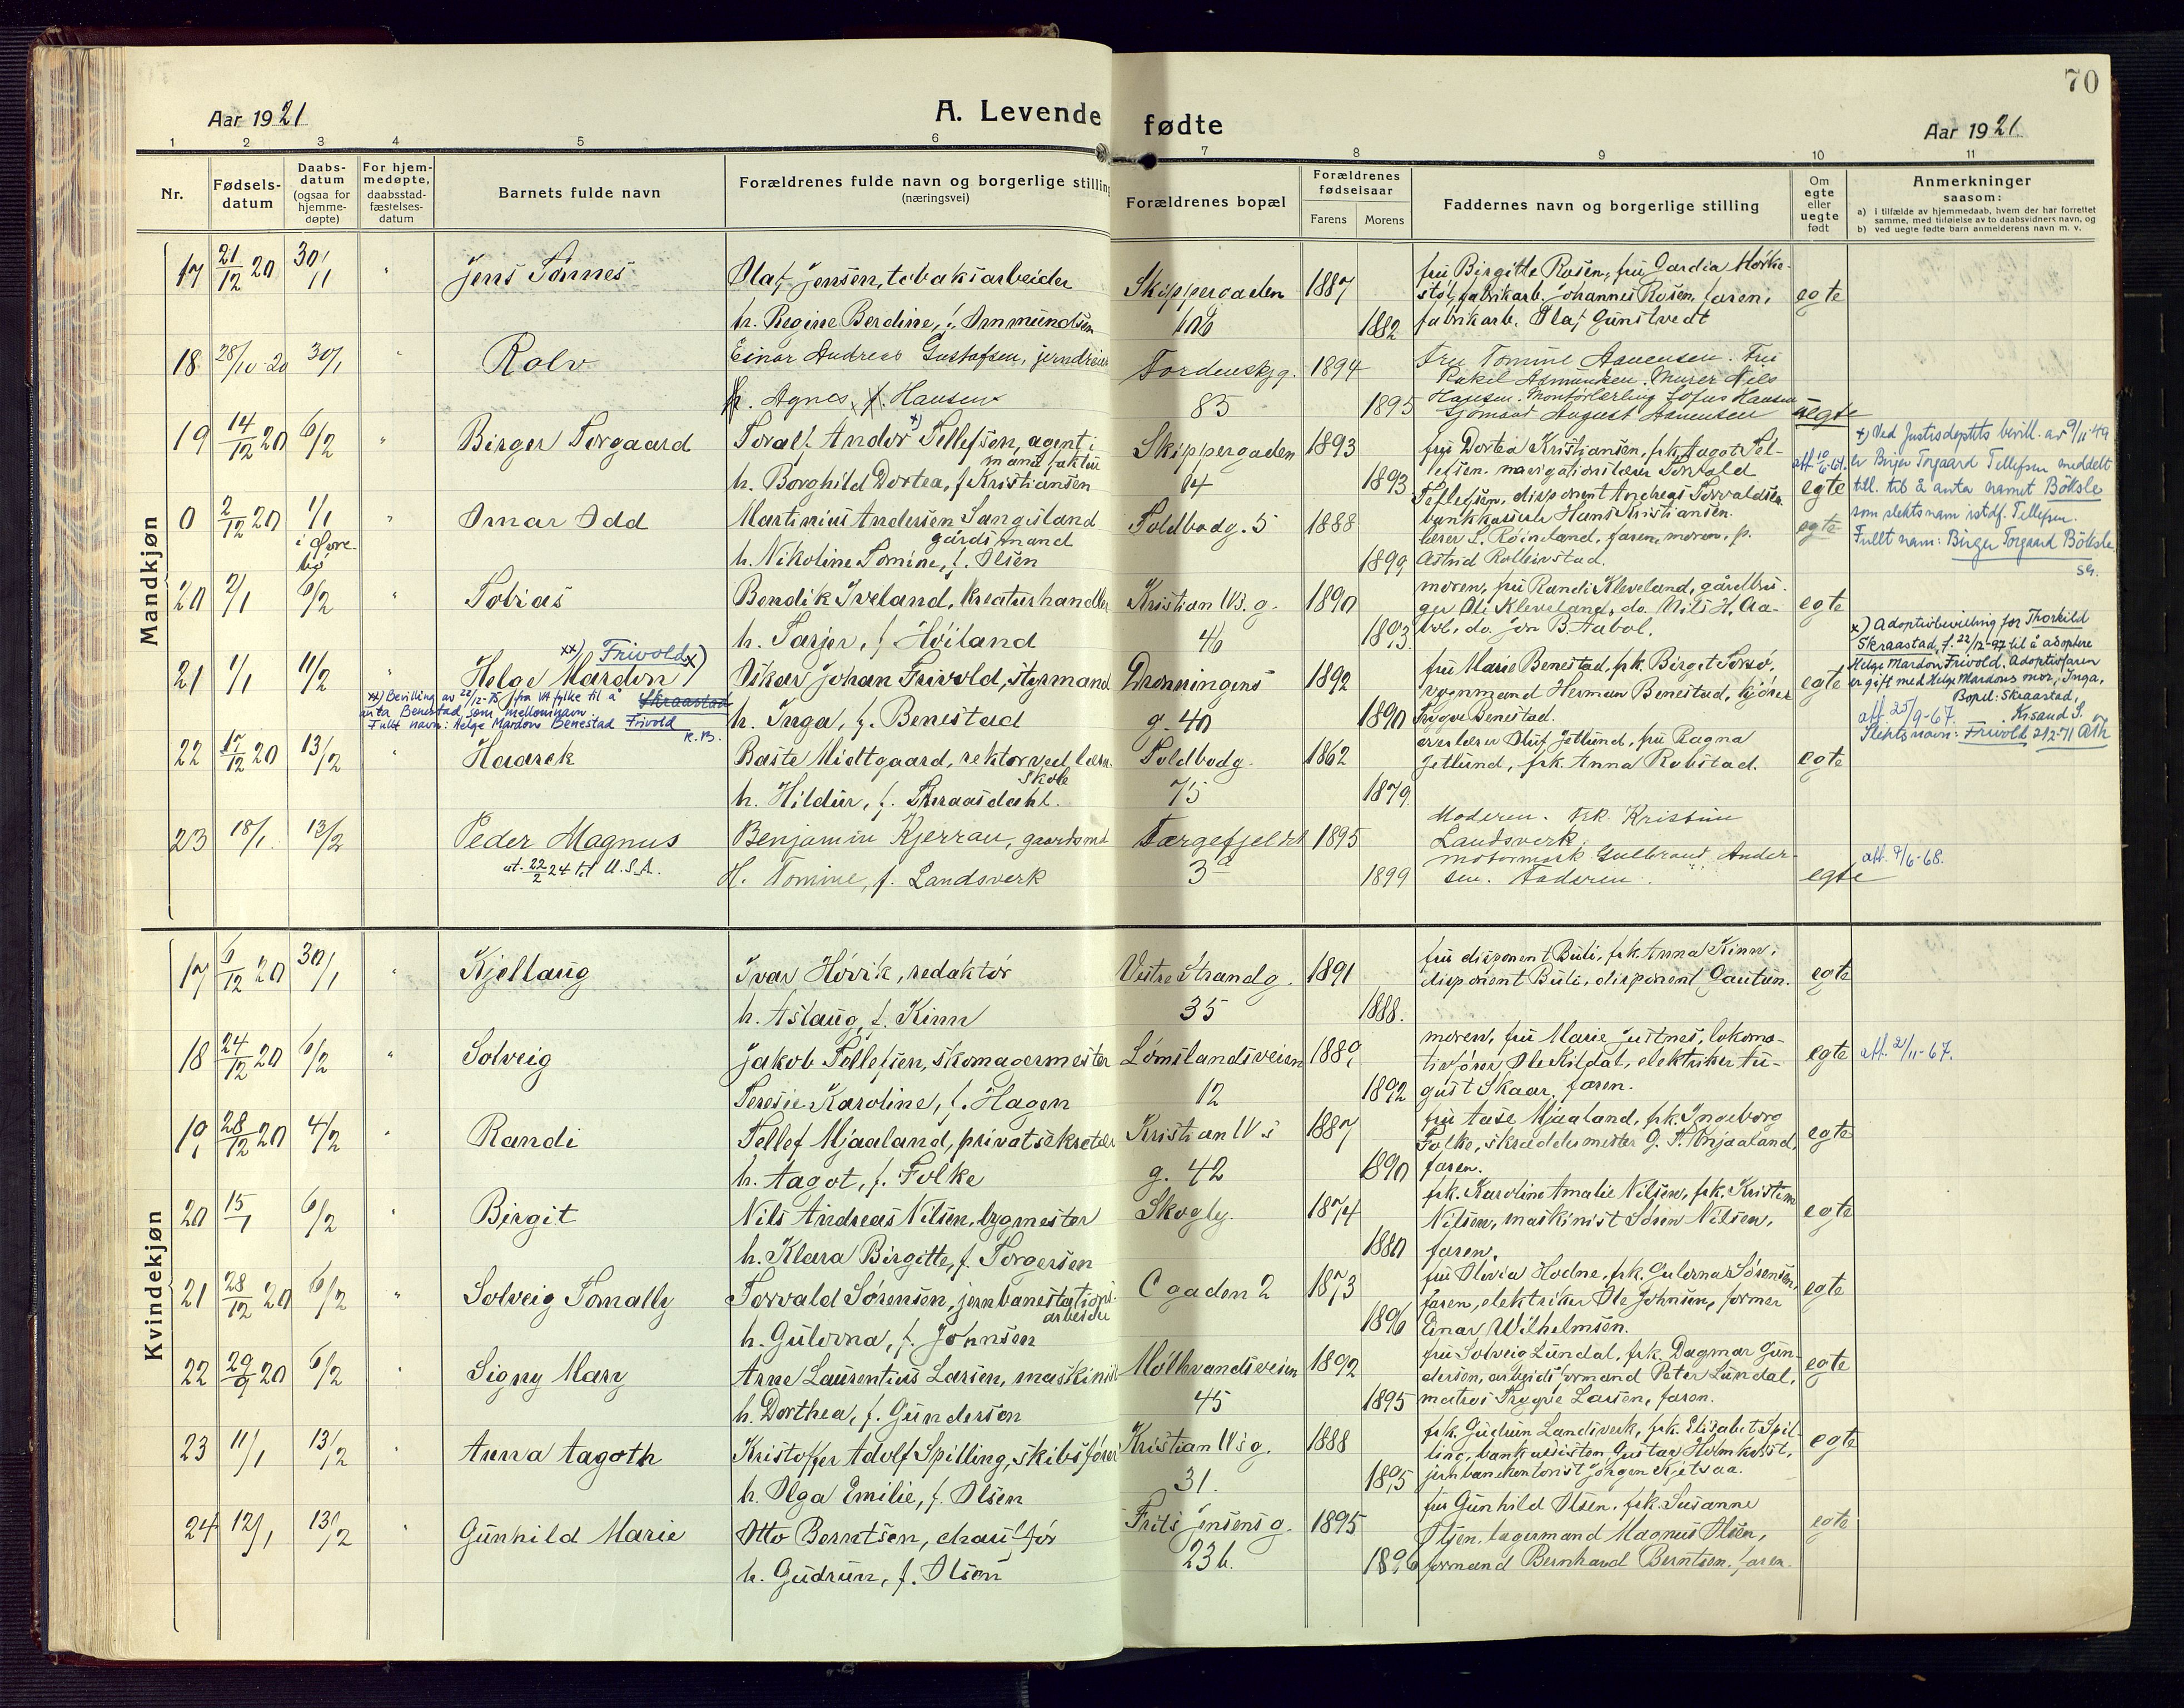 70
Aar 1921
A. Levende fødte
Aar 1921
1 2 3 4 5 6 7 8 9 10 11
Nr.
Fødsels-
datum
Daabs-
datum
(ogsaa for
hjemme-
døpte)
For hjem-
medøpte,
daabsstad-
fæstelses-
datum
Barnets fulde navn
Forældrenes fulde navn og borgerlige stilling
(næringsvei)
Forældrenes bopæl
Forældrenes
fødselsaar
Farens Morens
Faddernes navn og borgerlige stilling
Om
egte
eller
uegte
født
Anmerkninger
saasom:
a) I tilfælde av hjemmedaab, hvem der har forrettet
samme, med tilføielse av to daabsvidners navn, og
b) ved uegte fødte barn anmelderens navn m. v.
Mandkjøn
17 21/12 20 30/1 " Jens Tønnes Olaf Jensen, tobaksarbeider Skippergaden 1887 fru Birgitte Rosen, fru Gardia
fabrikarb. Johannes Rosen, faren, egte
h. Regine Berdine, f. Anmundsen 106 1882 fabrikarb. Olaf Gunstvedt
18 28/10 20 30/1 " Rolv Einar Andreas Gustafsen, jerndreier Tordenskj.g. 1894 Fru Tomine Aanensen. Fru
Rakel Asmundsen. Murer Nils
h. Agnes f. Hansen 85 1895 Hansen. Montørlærling Sofus Hansen
Sjømand August Aanensen uegte
19 14/12 20 6/2 " Birger Torgaard Toralf Andor x) Tellefsen, agent i Skippergaden 1893 fru Dortea Kristiansen, frk Aagot Tel-
manufaktur
lefsen. navigationslærer Torvald
h. Borghild Dortea, f Kristiansen 14 1893 Tellefsen, disponent Andreas Torvaldsen egte
bankkasserer Hans Kristiansen.
att 10/6-61.
x) Ved Justisdeptets bevill. av 9/11 49
er Birger Torgaard Tellefsen meddelt
till. til å anta namet Bøksle
som slektsnam istdf. Tellefsen.
Fullt nam: Birger Torgaard Bøksle.
0 2/12 20 1/1 " Omar Odd Martinius Andersen Langeland Toldbodg. 5 1888 lærer S. Røineland, faren, moren, p. egte
i Øvre-
bø
gårdsmand
h. Nikoline Tomine, f. Olsen 1899 Astrid
20 2/1 6/2 " Tobias Bendik Iveland, kreaturhandler Kristian IVs. g. 1890 moren, fru Randi Kleveland, gårdbru-
ger Ole Kleveland, do. Nils H. Aa- egte
h. Tarjer, f Høiland 46 1893 bol, do. Jon B. Aabol.
21 1/1 11/2 " Helge Mardon x) xx) Frivold Oskar Johan Frivold, styrmand Dronningens 1892 fru Marie Benestad, frk. Birgit
Skraastad
vognmand Herman Benestad, kjører egte
xx) Bevilling av 22/12-75 fra VA fylke til å
anta Benestad som mellomnavn
Fullt navn: Helge Mardon Benestad Frivold
K.B.
h. Inga, f. Benestad g. 40 1890 Trygve Benestad.
x) Adoptivbevilling for Thorkild
Skraastad, f. 22/12-97 til å adoptere
Helge Mardon Frivold. Adoptivfaren
er gift med Helge Mardons mor, Inga,
Bopel: Skraastad,
Krsand S.
att. 25/9-67.
Slektsnavn: Frivold 21/2-71
22 17/12 20 13/2 " Haarek Baste Midtgaard, rektor ved lærer- Toldbodg. 1862 overlærer Oluf Jetlund, fru Ragna
skole
Jetlund, frk. Anna Robstad. egte
h. Hildur, f. Thraasdahl. 75 1879
23 18/1 13/2 Peder Magnus Benjamin Kjerrau, gaardsmd Tærgefjeldet 1895 Moderen. Frk. Kristine
Landsverk
ut. 22/2 24 til U.S.A.
H. Tomine, f. Landsverk 3 a 1899 motormask Gulbrand Ander-
sen. Faderen. egte
att. 9/6-68.
Kvindekjøn
17 6/12 20 30/1 " Kjellaug Ivar Høvik, redaktør Vestre Strandg. 1891 fru disponent Buli, frk Anna Kinn,
disponent Buli, disponent Gautun. egte
h. Aslaug, f. Kinn 35 1888.
18 24/12 20 6/2 " Solveig Jakob Tellefsen, skomagermester Lømslandsveien 1889 moren, fru Marie Justnes, lokomo-
tivfører Ole Kildal, elektriker Au- egte att. 2/11-67.
Teresie Karoline, f. Hagen 12 1892 gust Skaar, faren.
19 28/12 20 4/2 " Randi Tellef Mjaaland, privatsekretær Kristian IVs 1887 fru Aase Mjaaland, frk. Ingeborg
Folke, skræddermester G. T. Mjaaland, egte
h. Aagot, f. Folke g. 42 1890 faren.
20 15/1 6/2 " Birgit Nils Andreas Nilsen, bygmester Skogly. 1874 frk. Karoline Amalie Nilsen, frk. Kristine
Nilsen, maskinist Søren Nilsen, egte
h. Klara Birgitte, f. Torgersen 1880 faren.
21 28/12 20 6/2 " Solveig Tomally Torvald Sørensen, jernbanestations- C gaden 2 1873 fru Olevia Hodne, frk. Gulovna Sørensen,
arbeider
faren, elektriker Ole Johnsen, former egte
h. Gulovna, f. Johnsen 1896 Einar Wilhelmsen.
22 29/9 20 6/2 " Signy Mary Arne Laurentius Larsen, maskinist Møllevandsveien 1892 fru Solveig Lundal, frk. Dagmar Gun-
dersen, arbeidsformand Peter Lundal, egte
h. Dorthea, f. Gundersen 45 1895 matros Trygve Larsen, faren.
23 11/1 13/2 " Anna Aagoth Kristoffer Adolf Spilling, skibsfører Kristian IVs g. 1888 frk. Gudrun Landsverk, frk. Elisabet Spil-
ling, bankassistent Gustav Holmkvist, egte
h. Olga Emilie, f. Olsen 31. 1895 jernbanekontorist Jørgen Kjetsaa.
24 12/1 13/2 " Gunhild Marie Otto Berntsen, chauffør Frits Jensens g. 1895 fru Gunhild Olsen, frk. Susanne
Olsen, lagermand Magnus Olsen, egte
h. Gudrun, f. Olsen 23 b. 1896 formand Bernhard Berntsen, faren.